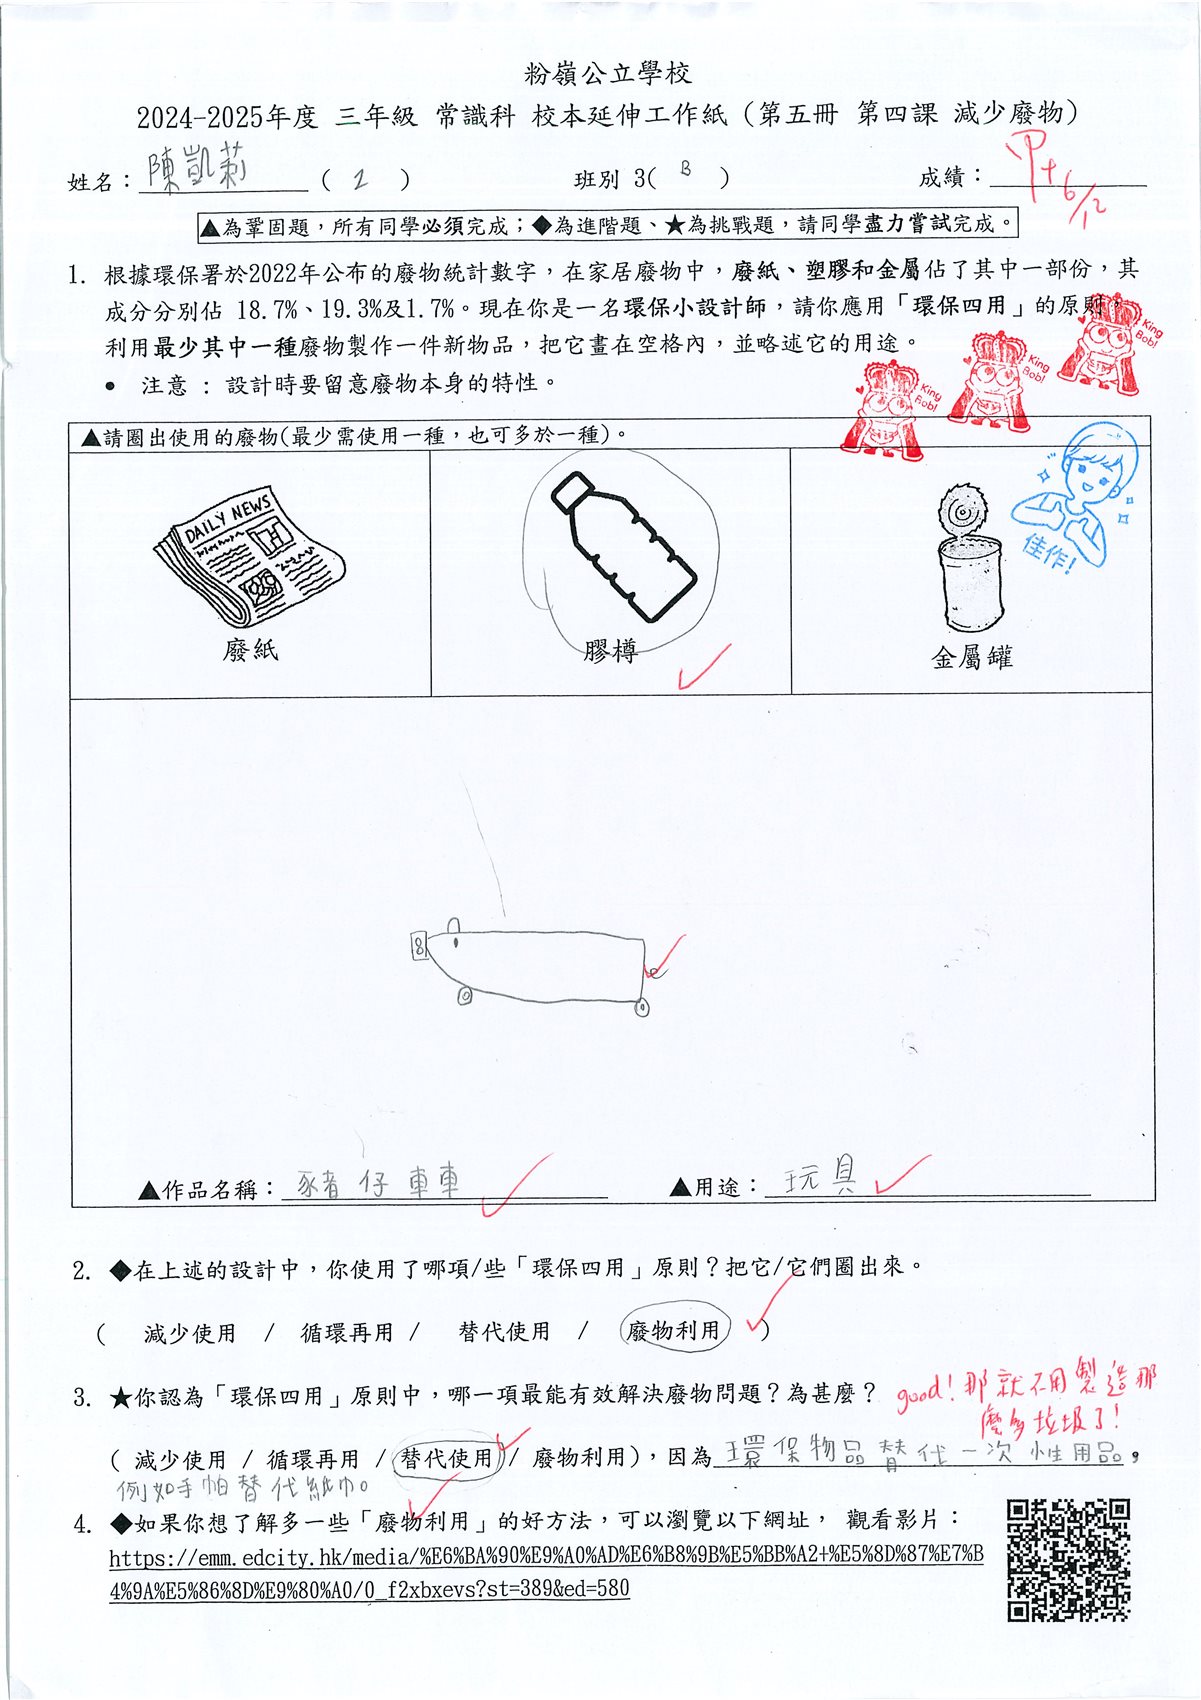 粉嶺公立學校
2024-2025年度 三年級 常識科 校本延伸工作紙 (第五冊 第四課 減少廢物)
姓名:陳凱莉 ( 2 ) 班別 3( B ) 成績: 甲+ 6/12
▲為鞏固題,所有同學必須完成;◆為進階題、★為挑戰題,請同學盡力嘗試完成。
1. 根據環保署於2022年公布的廢物統計數字,在家居廢物中,廢紙、塑膠和金屬佔了其中一部份,其
成分分別佔 18.7%、19.3%及1.7%。現在你是一名環保小設計師,請你應用「環保四用」的原則,
利用最少其中一種廢物製作一件新物品,把它畫在空格內,並略述它的用途。
King Bob!
King Bob!
King Bob!
• 注意 : 設計時要留意廢物本身的特性。
▲請圈出使用的廢物(最少需使用一種,也可多於一種)。
DAILY NEWS
佳作!
廢紙 膠樽 金屬罐
▲作品名稱: 豬仔車車 ▲用途: 玩具
2. ◆在上述的設計中,你使用了哪項/些「環保四用」原則?把它/它們圈出來。
( 減少使用 / 循環再用 / 替代使用 / 廢物利用 )
3. ★你認為「環保四用」原則中,哪一項最能有效解決廢物問題?為甚麼?
good! 那就不用製造那
麼多垃圾了!
( 減少使用 / 循環再用 / 替代使用 / 廢物利用),因為環保物品替代一次性用品。
例如手帕替代紙巾。
4. ◆如果你想了解多一些「廢物利用」的好方法,可以瀏覽以下網址, 觀看影片:
https://emm.edcity.hk/media/%E6%BA%90%E9%A0%AD%E6%B8%9B%E5%BB%A2+%E5%8D%87%E7%B
4%9A%E5%86%8D%E9%80%A0/0_f2xbxevs?st=389&ed=580